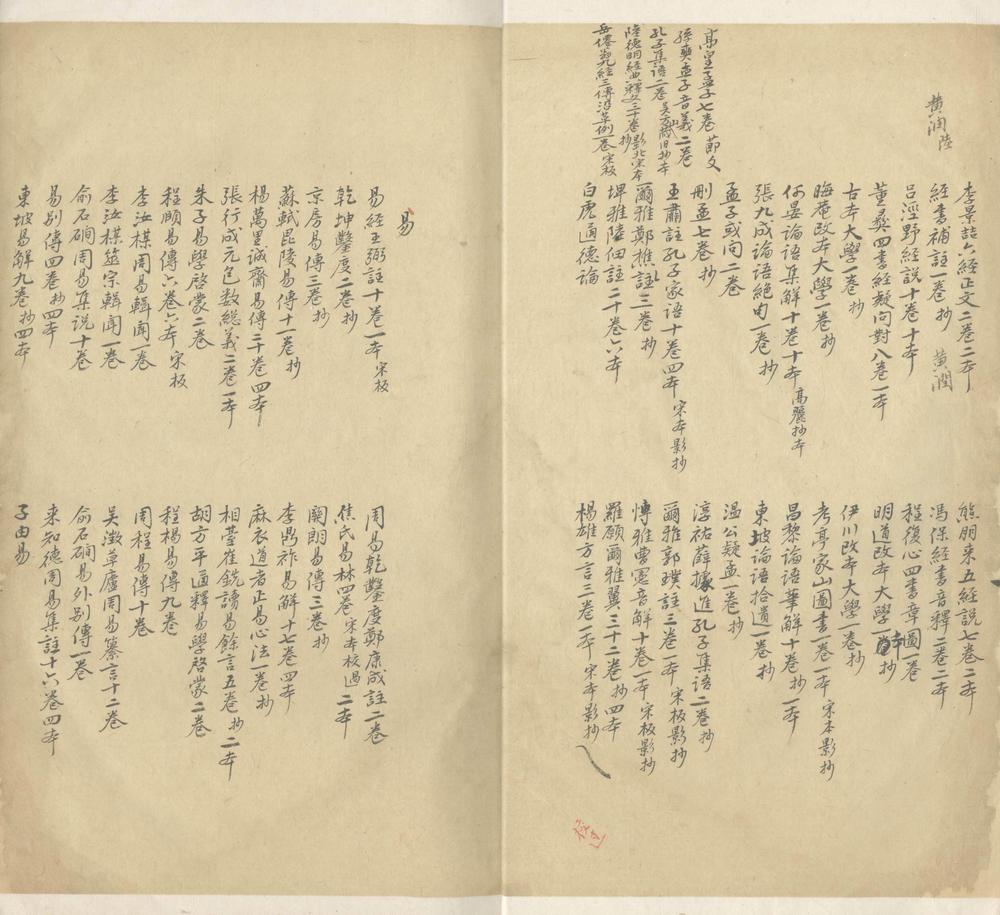 高皇孟子七卷 節文
孫奭孟子音義二卷
孔子集語二卷 吴方山藏旧抄本
陸德明經典釋文三十卷 影北宋本抄
岳倦翁九經三傳沿革例一卷 宋板
黄润陸
李景誥六經正文二卷二本
經書補註一卷抄 黄潤
吕涇野經説十卷十本
董彝四書經疑问對八卷一本
古本大學一卷抄
晦菴改本大學一卷抄
何晏論语集解十卷十本 高麗抄本
張九成論语絶句一卷抄
孟子或问二卷
刪孟七卷抄
王肅註孔子家语十卷四本 宋本影抄
爾雅鄭樵註三卷抄
埤雅陸佃註二十卷六本
白虎通德論
熊朋来五經説七卷二本
馮保經書音釋一卷二本
程復心四書章圖一卷
明道改本大學一本抄
伊川改本大學一卷抄
考亭家山圖書一卷一本 宋本影抄
昌黎論语筆解十卷抄一本
東坡論语拾遺一卷抄
温公疑孟一卷抄
淳祐薛據進孔子集语二卷抄
爾雅郭璞註三卷一本 宋板影抄
博雅曹憲音解十卷一本 宋板影抄
羅願爾雅翼三十二卷抄四本
楊雄方言三卷一本 宋本影抄
易
易經王弼註十卷一本 宋板
乾坤鑿度二卷抄
京房易傳三卷抄
蘇軾毘陵易傳十一卷抄
楊萬里誠齋易傳二十卷四本
張行成元包数総義二卷一本
朱子易學啓蒙二卷
程頤易傳六卷六本 宋板
李汝楳周易輯聞一卷
李汝楳筮宗輯聞一卷
俞石磵周易集説十卷
易别傳四卷抄四本
東坡易解九卷抄四本
周易乾鑿度鄭康成註二卷
焦氏易林四卷 宋本校過 二本
關朗易傳三卷抄
李鼎祚易解十七卷四本
麻衣道者正易心法一卷抄
相臺崔銑讀易餘言五卷抄二本
胡方平通釋易學啓蒙二卷
程楊易傳九卷
周程易傳十卷
吴澂草廬周易纂言十二卷
俞石磵易外别傳一卷
来知德周易集註十六卷四本
子由易